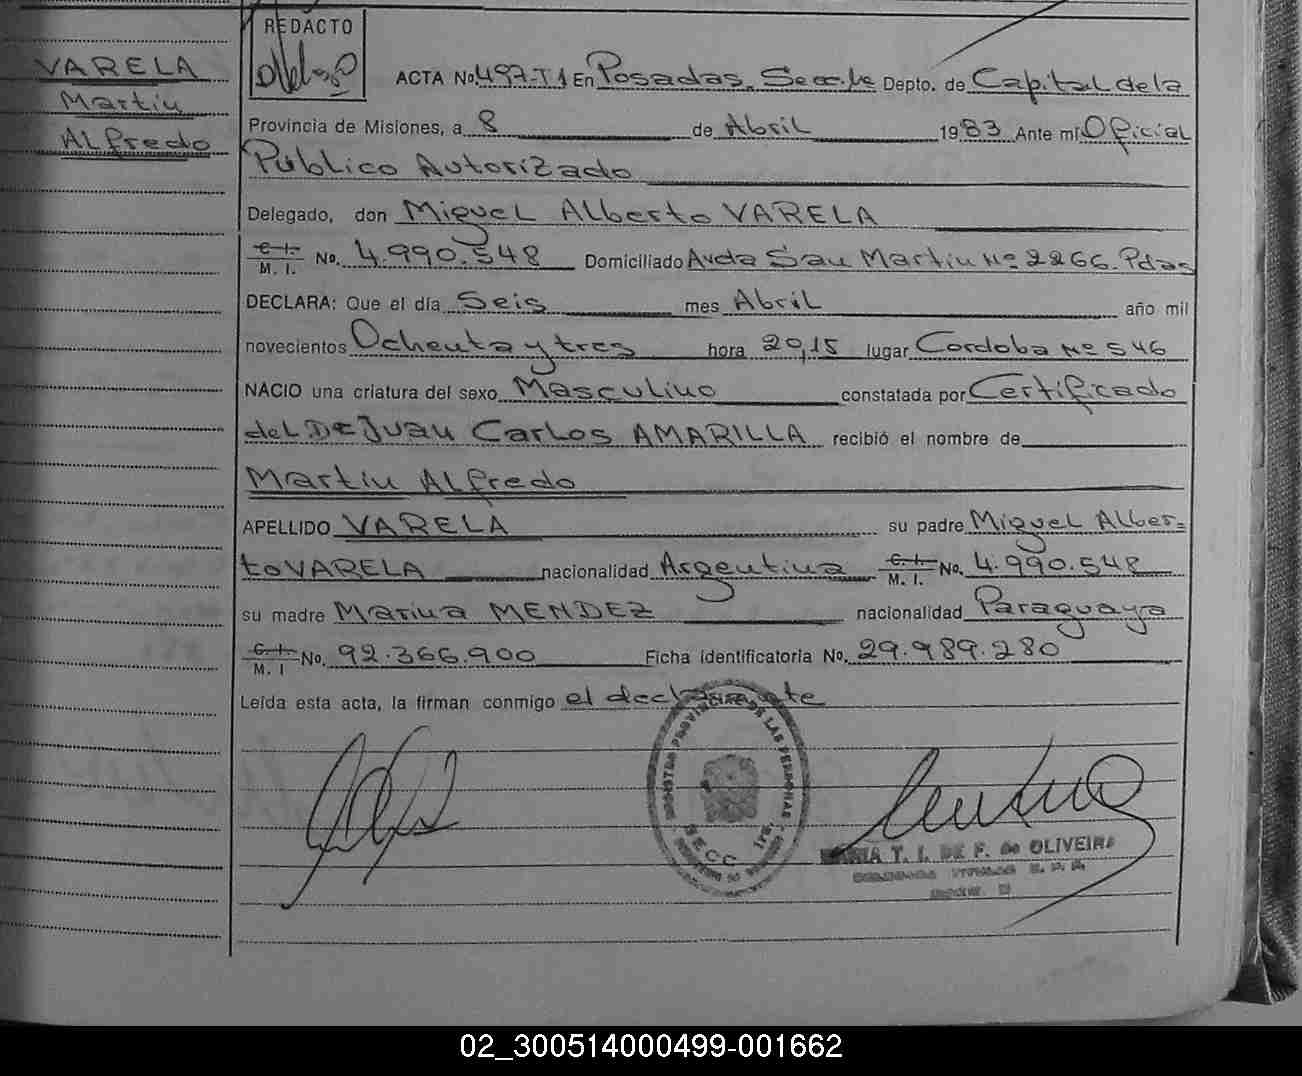 REDACTO
VARELA
Martin
Alfredo
ACTA No. 497-T1 En Posadas, Secc. 1ª Depto. de Capital de la
Provincia de Misiones, a 8 de Abril 1983 Ante mí Oficial
Público Autorizado
Delegado, don Miguel Alberto VARELA
C. I.
M. I. No. 4.990.548 Domiciliado Avda San Martin Nº 2266. Pdas
DECLARA: Que el día Seis mes Abril año mil
novecientos Ochenta y tres hora 20,15 lugar Cordoba Nº 546
NACIO una criatura del sexo Masculino constatada por Certificado
del Dr Juan Carlos AMARILLA recibió el nombre de
Martin Alfredo
APELLIDO VARELA su padre Miguel Alber=
to VARELA nacionalidad Argentina C. I.
M. I. No. 4.990.548
su madre Marina MENDEZ nacionalidad Paraguaya
C. I.
M. I No. 92.366.900 Ficha identificatoria No. 29.989.280
Leída esta acta, la firman conmigo el declarante
REGISTRO PROVINCIAL DE LAS PERSONAS
SECC 1ra.
MARIA T. I. DE F. de OLIVEIRA
02_300514000499-001662